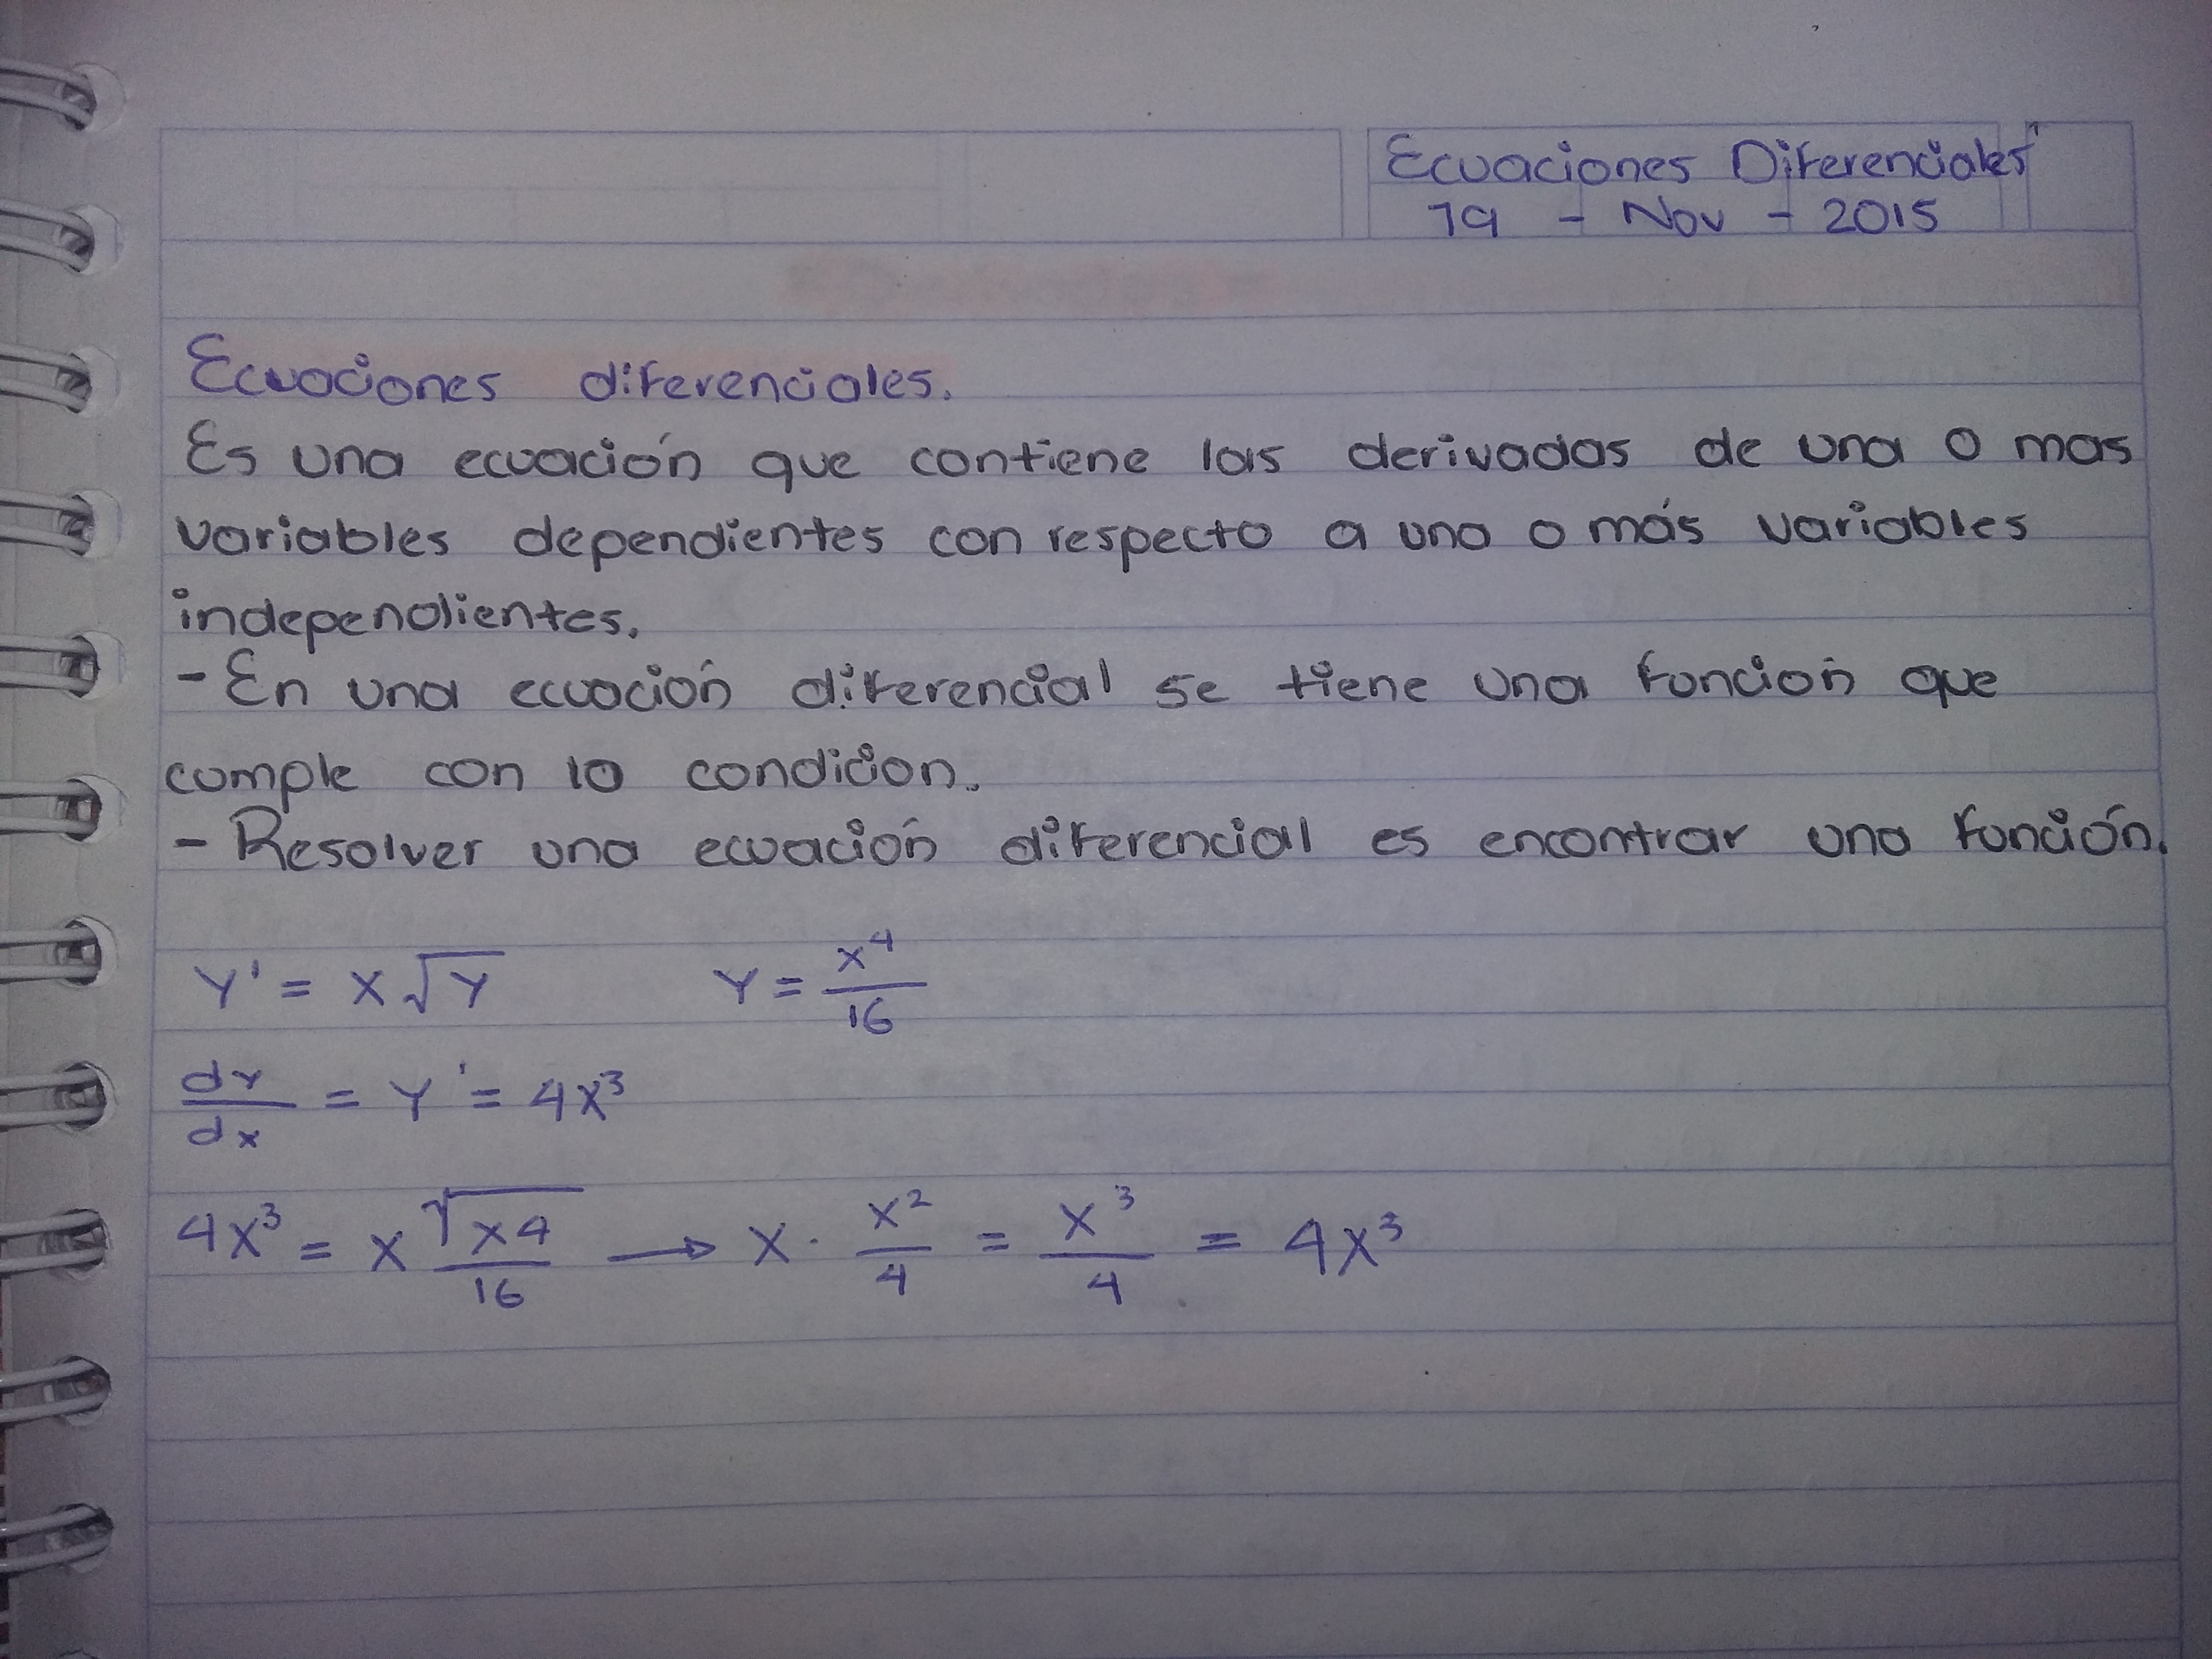 Ecuaciones Diferenciales
19 - Nov - 2015
Ecuaciones diferenciales.
Es una ecuación que contiene las derivadas de una o mas
variables dependientes con respecto a una o más variables
independientes.
- En una ecuación diferencial se tiene una función que
cumple con la condicion.
- Resolver una ecuación diferencial es encontrar una función.
Y' = X√Y    Y = x⁴/16
dy/dx = Y' = 4X³
4X³ = X √x4/16 → X · x²/4 = x³/4 = 4X³